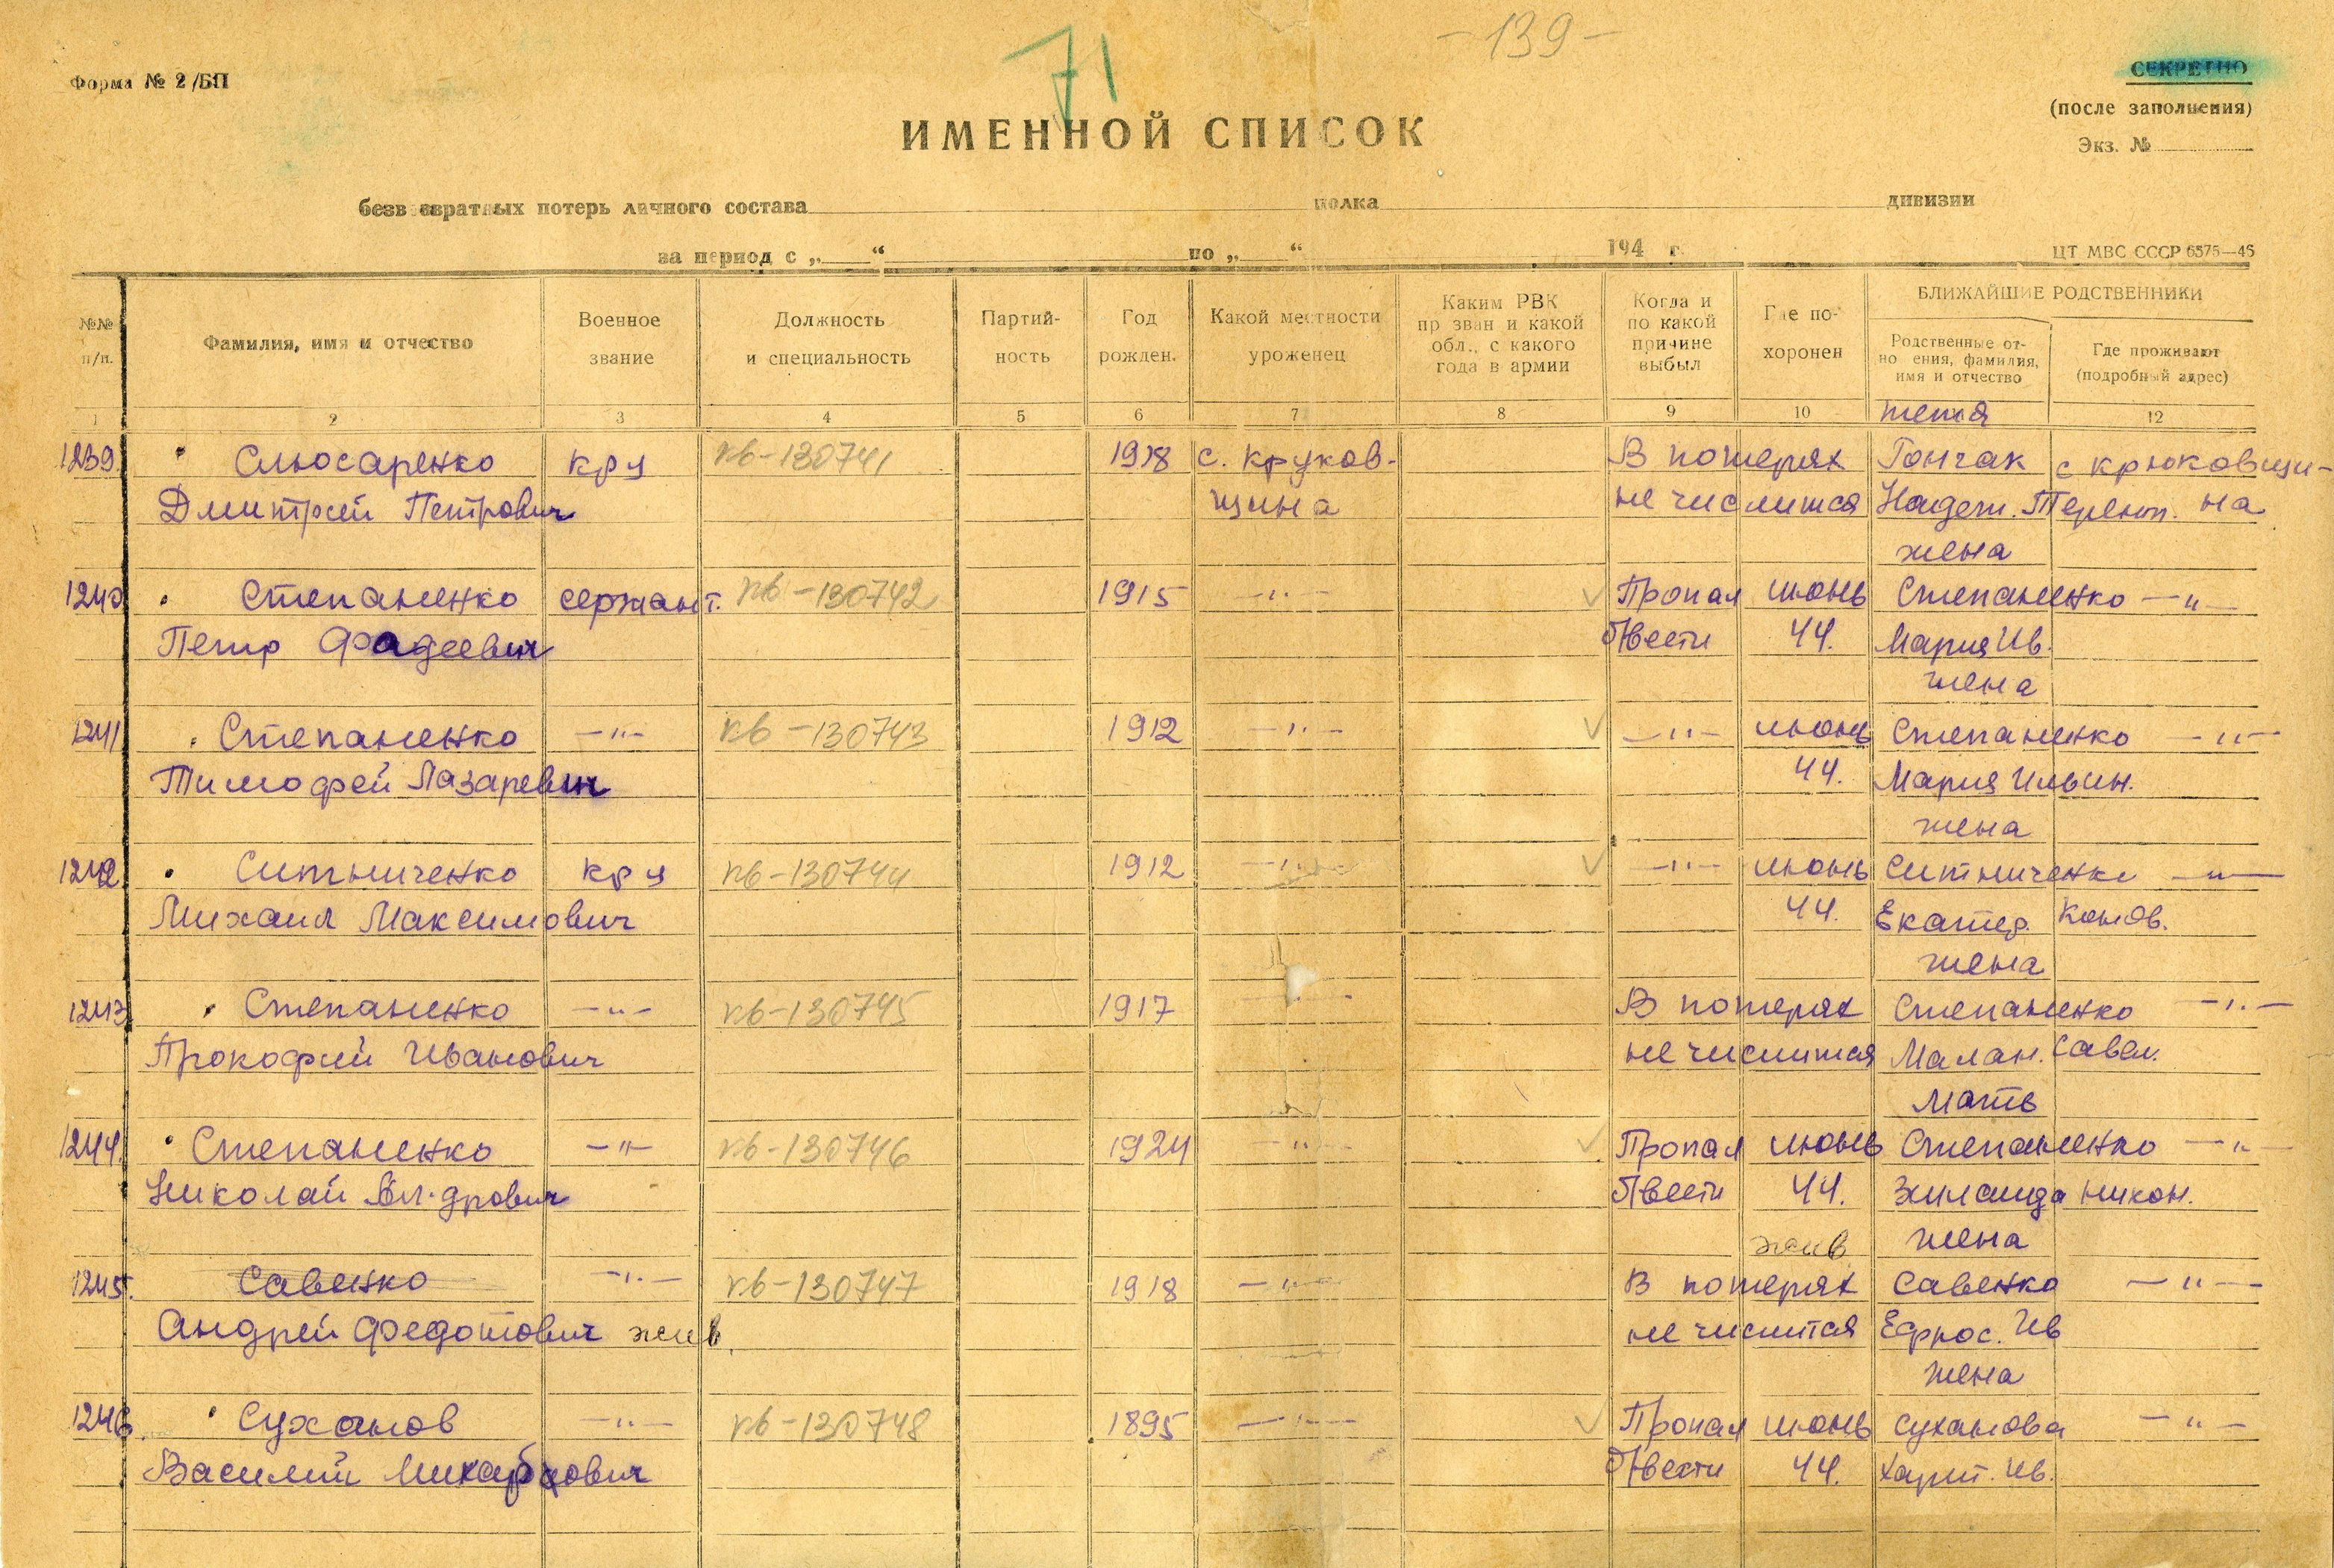 71
- 139 -
Форма № 2/БП
СЕКРЕТНО
(после заполнения)
Экз. №
ИМЕННОЙ СПИСОК
безвозвратных потерь личного состава полка дивизии
за период с „ “ по „ “ 194 г.
ЦТ МВС СССР 6575—45
№№ п/п.
Фамилия, имя и отчество
Военное звание
Должность и специальность
Партий-ность
Год рожден.
Какой местности уроженец
Каким РВК призван и какой обл., с какого года в армии
Когда и по какой причине выбыл
Где по-хоронен
БЛИЖАЙШИЕ РОДСТВЕННИКИ
Родственные от-ношения, фамилия, имя и отчество
Где проживают (подробный адрес)
1 2 3 4 5 6 7 8 9 10 12
тетя
1239 Слюсаренко кр-ц кв-130741 1918 с. Круков- В потерях Гончак с Крюковщи-
Дмитрий Петрович щина не числится Надеж. Терент. на
жена
1240 Степаненко сержант. кв-130742 1915 -"- Пропал июнь Степаненко -"-
Петр Фадеевич б/вести 44. Мария Ив.
жена
1241 Степаненко -"- кв-130743 1912 -"- -"- июнь Степаненко -"-
Тимофей Лазаревич 44. Мария Ильин.
жена
1242 Ситниченко кр-ц кв-130744 1912 -"- -"- июнь Ситниченко -"-
Михаил Максимович 44. Екатер. Конов.
жена
1243 Степаненко -"- кв-130745 1917 -"- В потерях Степаненко -"-
Прокофий Иванович не числится Малан. Савел.
мать
1244. Степаненко -"- кв-130746 1924 -"- Пропал июнь Степаненко -"-
Николай Ал-дрович б/вести 44. Зинаида Никон.
жив жена
1245. Савенко -"- кв-130747 1918 -"- В потерях Савенко -"-
Андрей Федотович жив. не числится Ефрос. Ив
жена
1246. Суханов -"- кв-130748 1895 -"- Пропал июнь Суханова -"-
Василий б/вести 44. Харит. Ив.